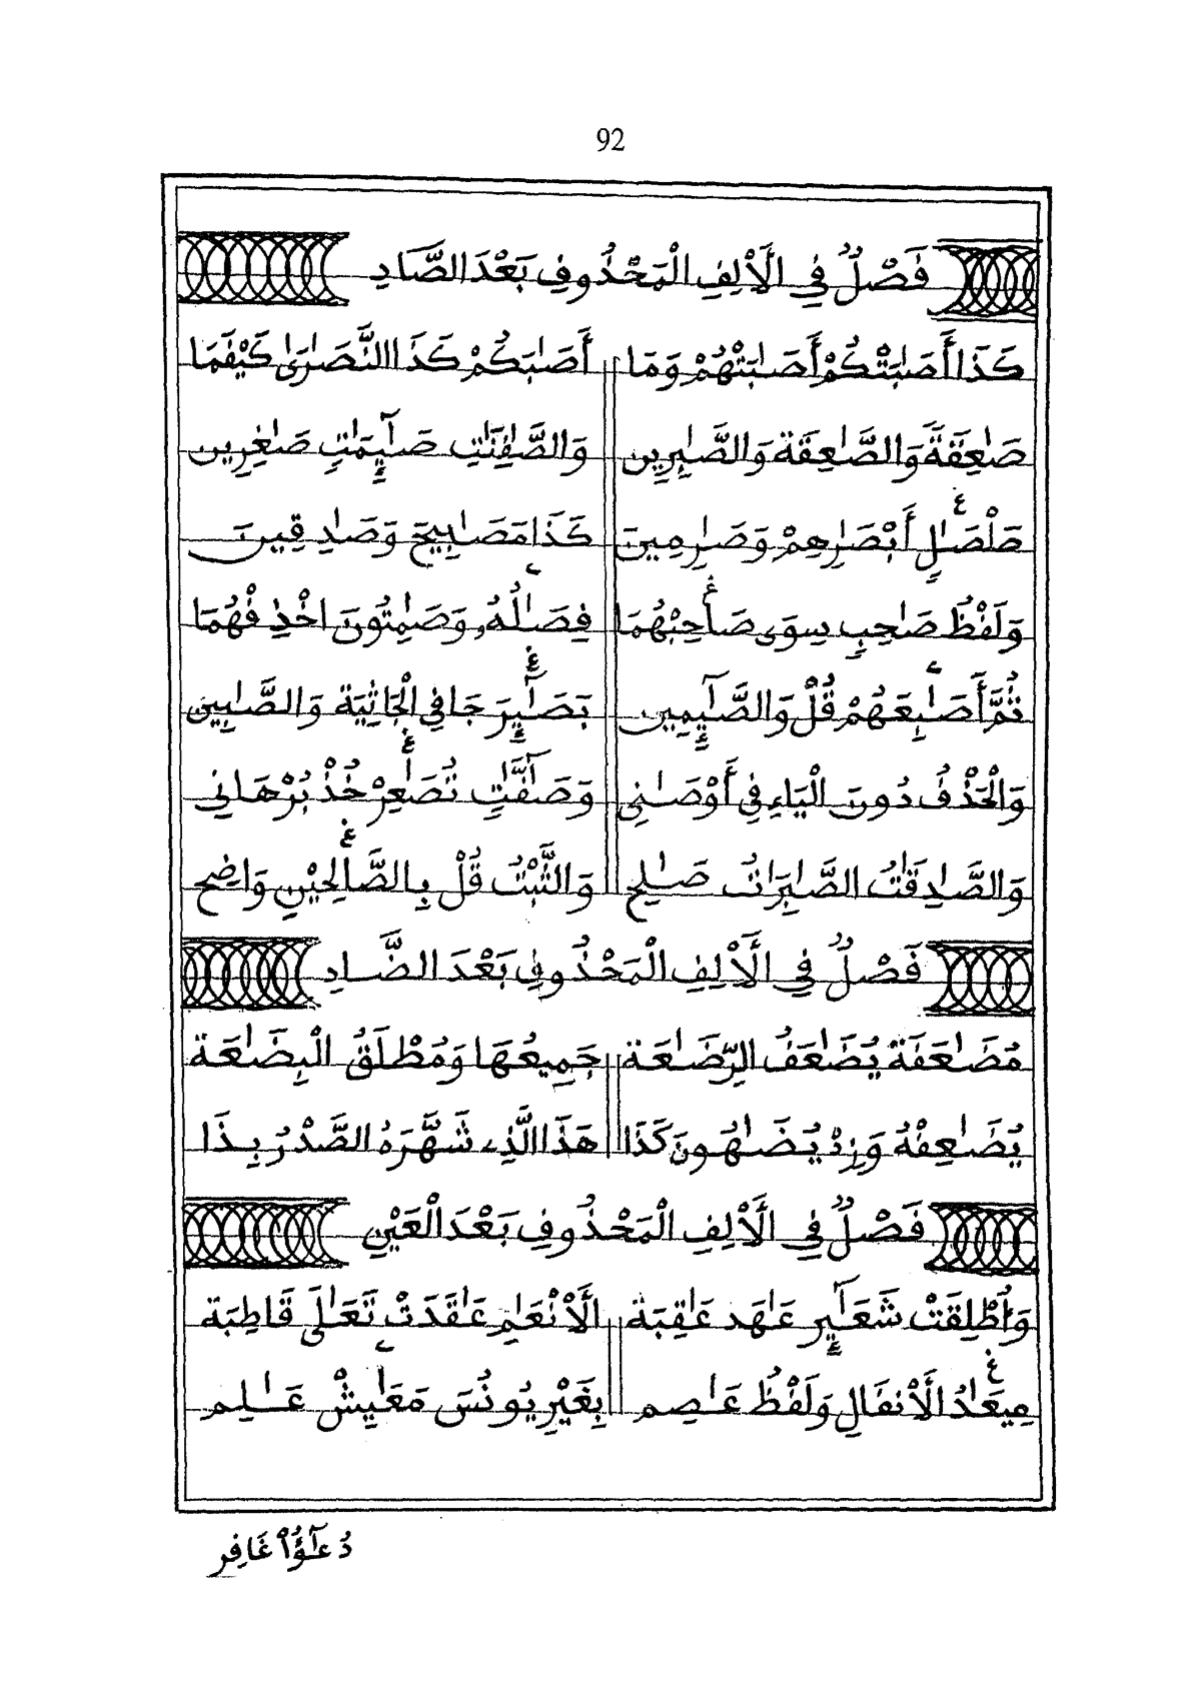 92
فَصْلٌ فِي الْأَلِفِ الْمَحْذُوفِ بَعْدَ الصَّادِ
كَذَا أَصَٰبَتْكُمْ أَصَٰبَتْهُمْ وَمَا أَصَٰبَكُمْ كَذَا النَّصَٰرَىٰ كَيْفَمَا
صَٰعِقَةً وَالصَّٰعِقَة وَالصَّٰبِرِين وَالصَّٰفِنَٰتِ صَٰٓئِمَٰتِ صَٰغِرِين
صَلْصَٰلٍ أَبْصَٰرِهِمْ وَصَٰرِمِينَ كَذَا مَصَٰبِيحَ وَصَٰدِقِينَ
وَلَفْظُ صَٰحِبٍ سِوَى صَاحِبْهُمَا فِصَٰلُهُ وَصَٰمِتُونَ اخْذِفْهُمَا
ثُمَّ أَصَٰبِعَهُمْ قُلْ وَالصَّٰٓئِمِين بَصَٰٓئِرَ جَا فِي الْجَاثِيَة وَالصَّٰبِين
وَالْحَذْفُ دُونَ الْيَاءِ فِي أَوْصَٰنِي وَصَٰٓفَّٰتٍ تُصَٰعِرْ خُذْ بُرْهَانِي
وَالصَّٰدِقَٰتُ الصَّٰبِرَٰتُ صَٰلِح وَالثَّبْتُ قُلْ بِالصَّالِحَيْنِ وَاضِح
فَصْلٌ فِي الْأَلِفِ الْمَحْذُوفِ بَعْدَ الضَّادِ
مُضَٰعَفَةً يُضَٰعَفُ الرِّضَٰعَة جَمِيعُهَا وَمُطْلَقُ الْبِضَٰعَة
يُضَٰعِفْهُ وَزِدْ يُضَٰهُونَ كَذَا هَذَا الَّذِي شَهَّرَهُ الصَّدْرُ بِذَا
فَصْلٌ فِي الْأَلِفِ الْمَحْذُوفِ بَعْدَ الْعَيْنِ
وَأُطْلِقَتْ شَعَٰٓئِر عَٰهَد عَٰقِبَة الْأَنْعَٰمِ عَٰقَدَتْ تَعَٰلَى قَاطِبَة
مِيعَٰدُ الْأَنفَالِ وَلَفْظُ عَٰصِم بِغَيْرِ يُونُسَ مَعَٰيِشْ عَٰلِم
دُعَٰٓؤُاْ غَافِرِ